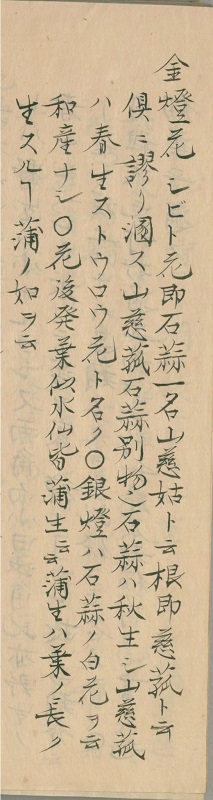 金燈花 シビト花即石蒜一名山慈姑ト云根即慈菰ト云
俱ニ謬リ溷ス山慈菰石蒜別物也石蒜ハ秋生シ山慈菰
ハ春生ストウロウ花ト名ク〇銀燈ハ石蒜ノ白花ヲ云
和産ナシ〇花後発葉似水仙皆蒲生云云蒲生ハ葉ノ長ク
生スルヿ蒲ノ如ヲ云